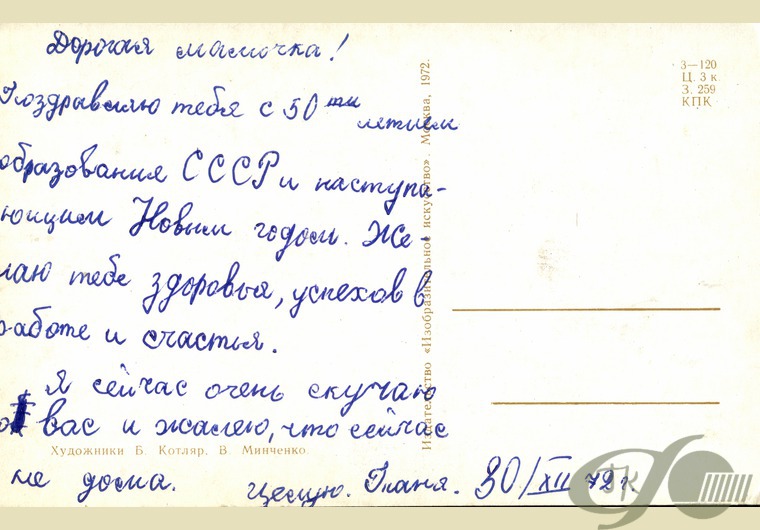 Дорогая мамочка!
Поздравляю тебя с 50 ти
летием
образования СССР и наступа-
ющим Новым годом. Же-
лаю тебе здоровья, успехов в
работе и счастья.
Я сейчас очень скучаю
вас и жалею, что сейчас
не дома. Целую. Таня. 30/XII 72 г.
Художники Б. Котляр, В. Минченко.
Издательство «Изобразительное искусство». Москва, 1972.
3—120
Ц. 3 к
З. 259
КПК
ГК